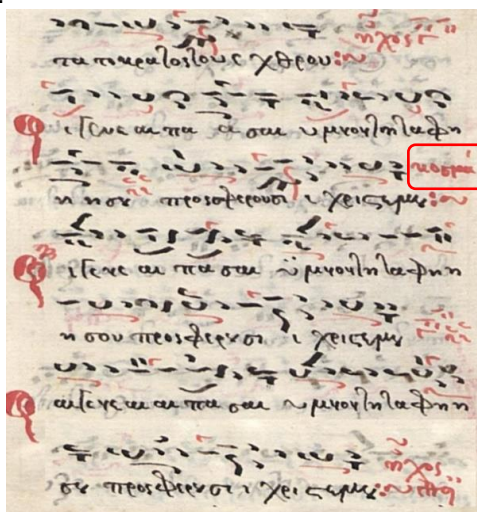 ἦχος
κρατος τους ε χθρου:~
Αι γενε αι πα α σαι υμνον τη ταφη
η η σου προσφερουσι ι χριστε μου:~ κοσμά
Αι γενε αι πα σαι ϋμνον τη ταφη η
η σου προσφερουσι ι χριστε μου
αι γενε αι αι πα σαι υμνον τη ταφη η
ἦχος
σου προσφερουσι ι χριστε μου:~